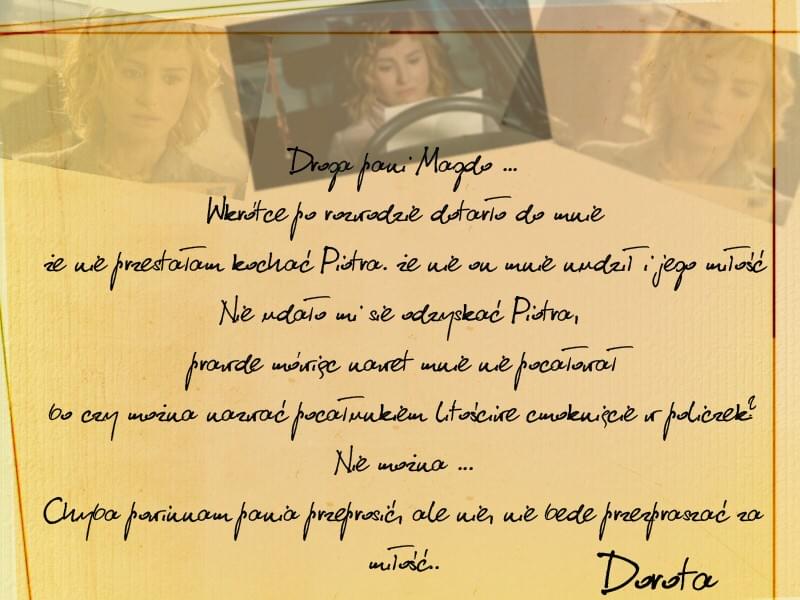 Droga pani Magdo ...
Wkrótce po rozwodzie dotarło do mnie
że nie przestałam kochać Piotra. że nie on mnie nudził i jego miłość
Nie udało mi sie odzyskać Piotra,
prawde mówięc nawet mnie nie pocałował
bo czy można nazwać pocałunkiem litościwe cmoknięcie w policzek?
Nie można ...
Chyba powinnam pania przeprosić, ale nie, nie bede przezpraszać za
miłość..
Dorota